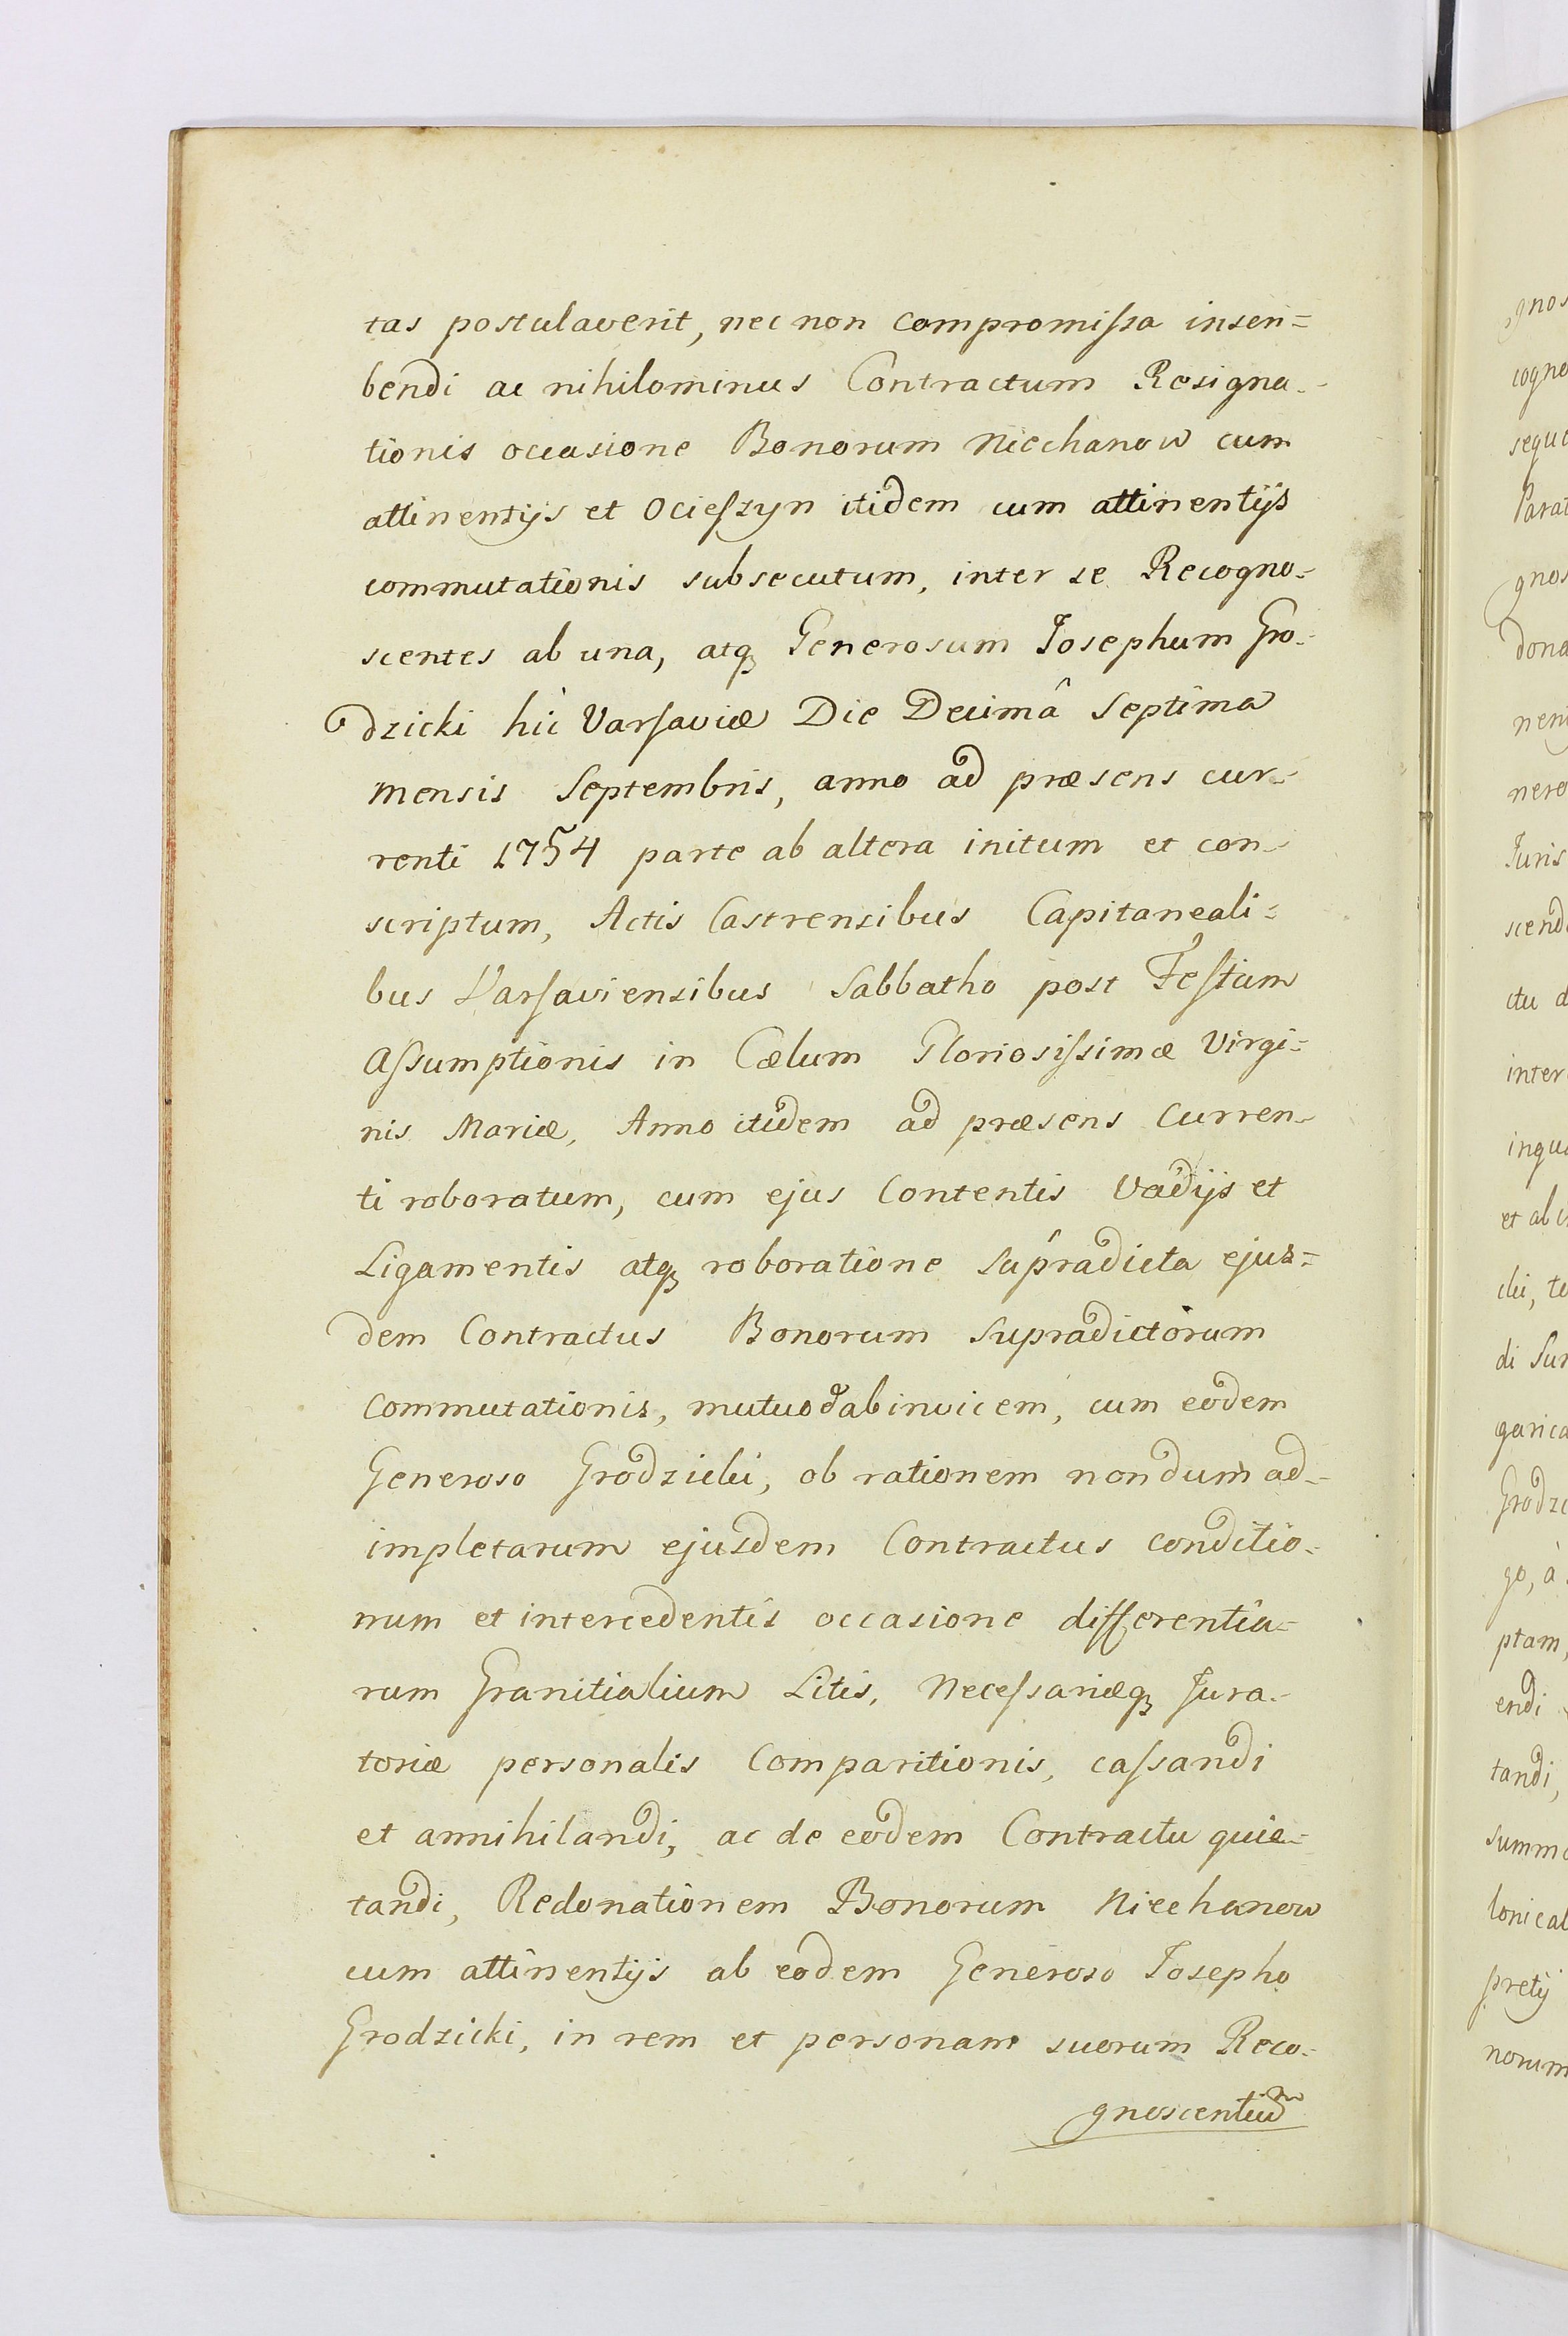 tas postulaverit, nec non compromissa inscri=
bendi ac nihilominus Contractum Resigna=
tionis occasione Bonorum Niechanow cum
attinentijs et Ocieszyn itidem cum attinentijs
commutationis subsecutum, inter se Recogno=
scentes ab una, atq Generosum Josephum Gro=
dzicki hic Varsaviæ Die Decimâ Septima
mensis Septembris, anno ad præsens cur=
renti 1754 parte ab altera initum et con=
scriptum, Actis Castrensibus Capitaneali=
bus Varsaviensibus Sabbatho post Festum
Assumptionis in Cælum Gloriosissimæ Virgi=
nis Mariæ, Anno itidem ad præsens Curren=
ti roboratum, cum ejus Contentis Vadijs et
Ligamentis atq roboratione supradicta ejus=
dem Contractus Bonorum Supradictorum
Commutationis, mutuo ab invicem, cum eodem
Generoso Grodzicki, ob rationem nondum ad=
impletarum ejusdem Contractus conditio=
num et intercedentis occasione differentia=
rum Granitialium Litis, Necessariæq Jura=
toriæ personalis Comparitionis, cassandi
et annihilandi, ac de eodem Contractu quie=
tandi, Redonationem Bonorum Niechanow
cum attinentijs ab eodem Generoso Josepho
Grodzicki, in rem et personam suorum Reco=
gnoscentium